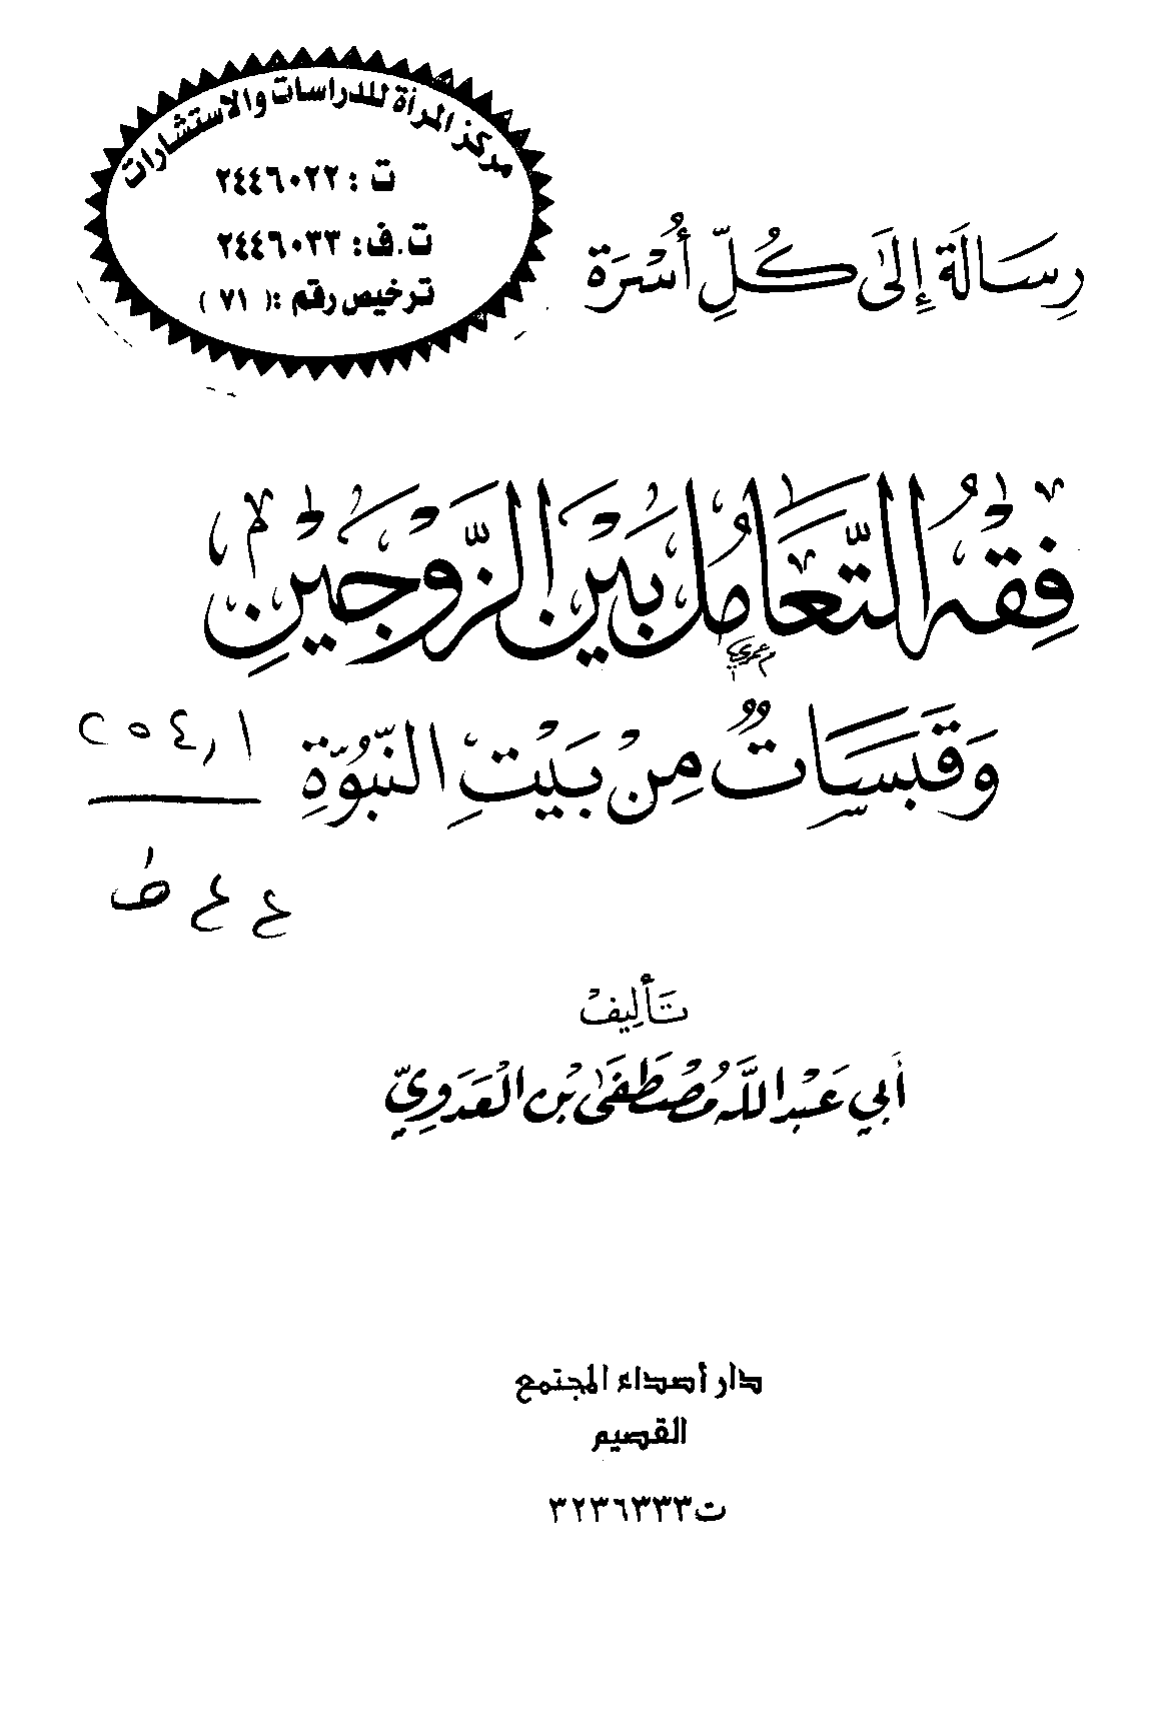 مركز المرأة للدراسات والاستشارات
ت : ٢٤٤٦٠٢٢
ت.ف: ٢٤٤٦٠٣٣
ترخيص رقم :( ٧١ )
رِسَالَة إِلَىٰ كُلِّ أُسْرَة
فِقْهُ التَّعَامُل بَيْنَ الزَّوْجَيْنِ
وَقَبَسَاتٌ مِنْ بَيْتِ النُّبُوَّةِ
٢٥٤,١
ع ع ف
تَأْلِيفْ
أَبِي عَبْد اللَّه مُصْطَفَىٰ بْن الْعَدَوِيّ
دار أصداء المجتمع
القصيم
ت٣٢٣٦٣٣٣